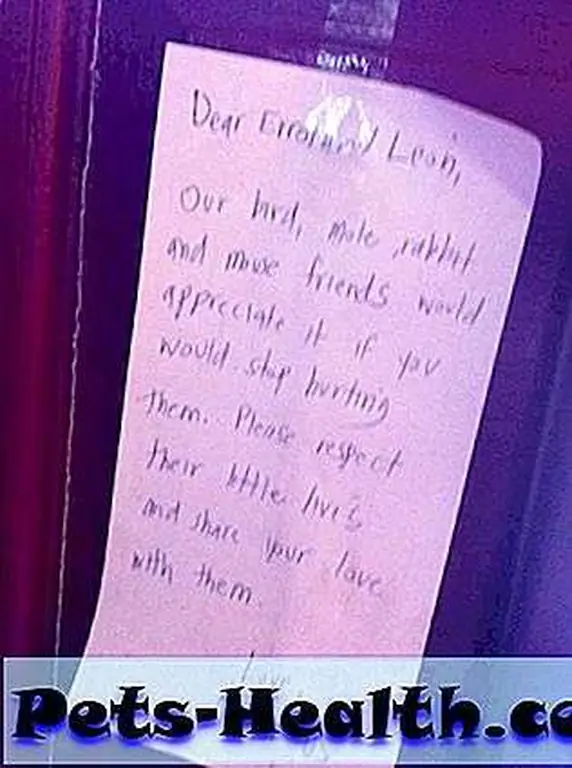 Dear Leon,
Our bird, mole, rabbit
and mouse friends would
appreciate it if you
would stop hurting
them. Please respect
their little lives
and share your love
with them.
Love
Pets-Health.co